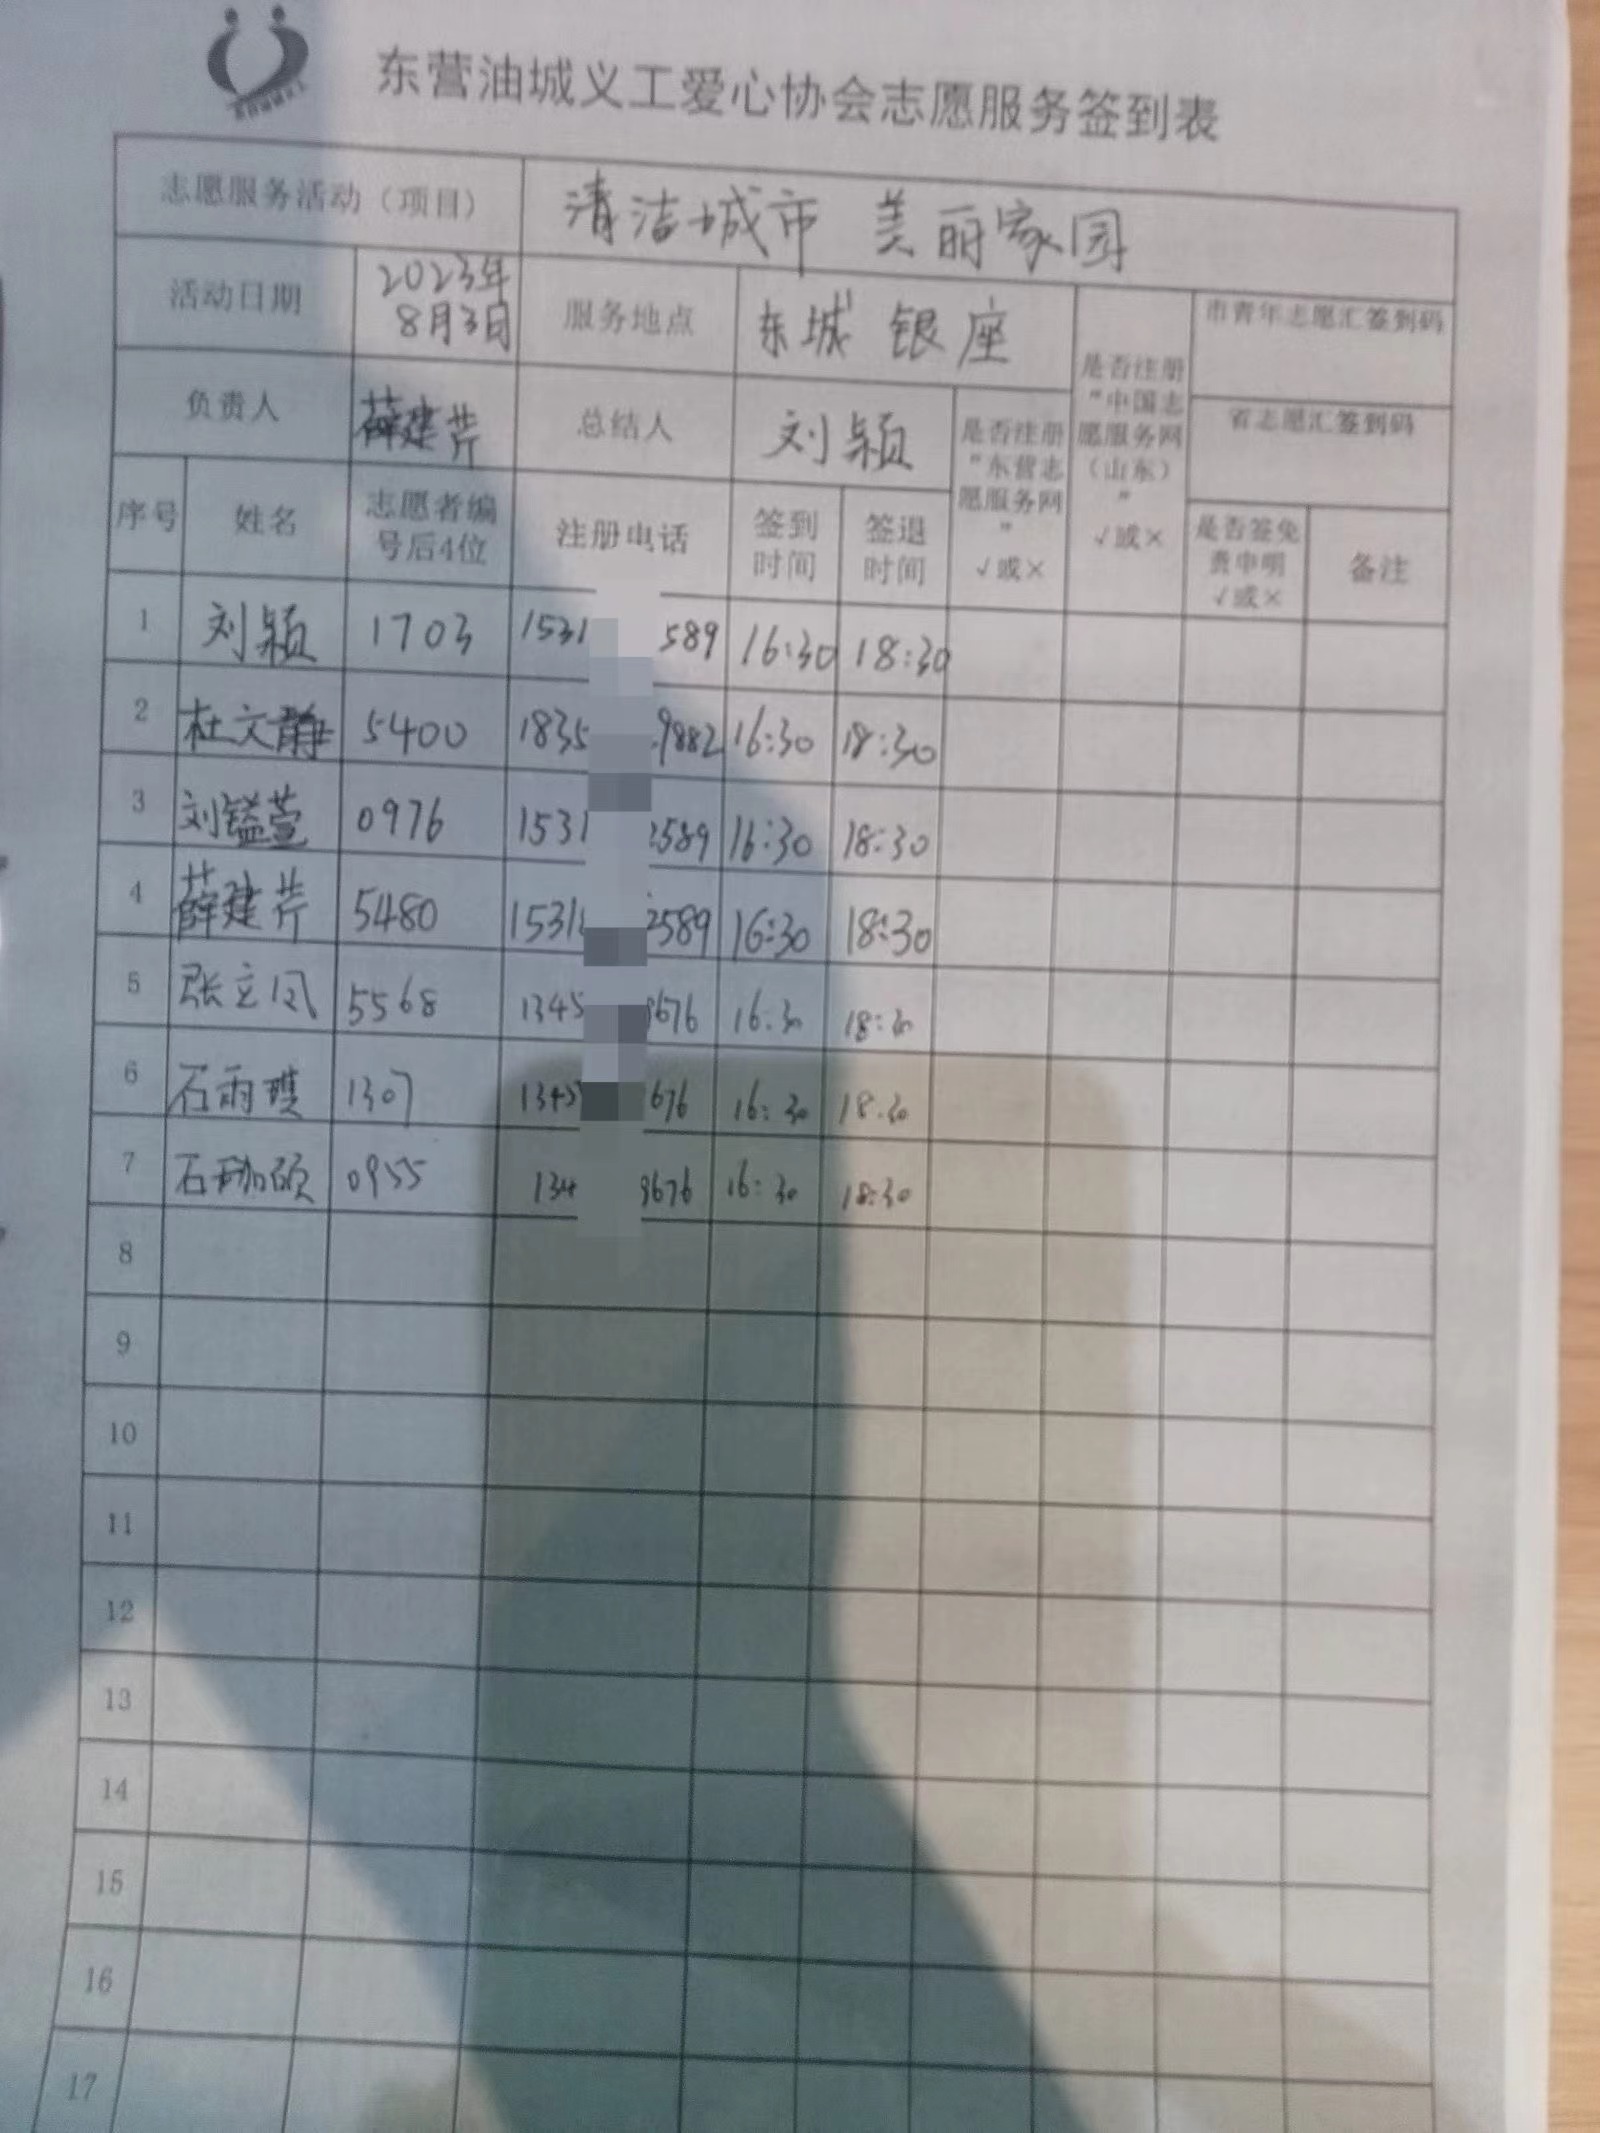 东营油城义工爱心协会志愿服务签到表
志愿服务活动（项目） 清洁城市 美丽家园
活动日期 2023年8月3日 服务地点 东城 银座 是否注册“中国志愿服务网（山东）” √或× 市青年志愿汇签到码
负责人 薛建芹 总结人 刘颖 是否注册“东营志愿服务网” √或× 省志愿汇签到码
序号 姓名 志愿者编号后4位 注册电话 签到时间 签退时间 是否签免责申明 √或× 备注
1 刘颖 1703 1531 589 16:30 18:30
2 杜文静 5400 1835 9882 16:30 18:30
3 刘镒萱 0976 1531 2589 16:30 18:30
4 薛建芹 5480 1531 2589 16:30 18:30
5 张立凤 5568 1345 9676 16:30 18:30
6 石雨璞 1307 1345 676 16:30 18:30
7 石珈硕 0955 134 9676 16:30 18:30
8
9
10
11
12
13
14
15
16
17